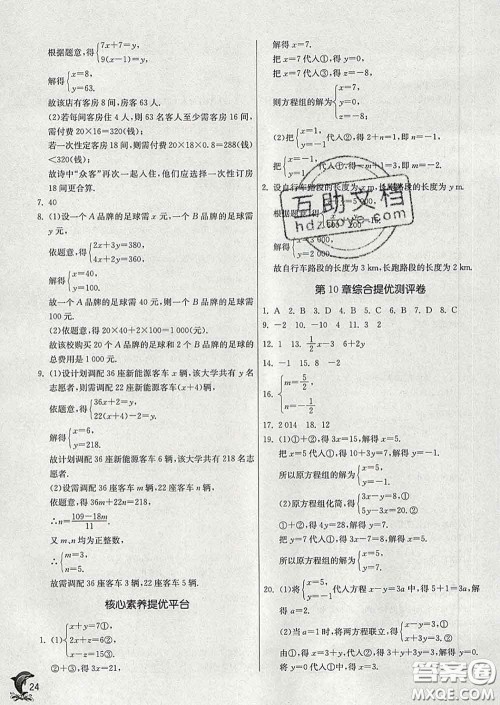 根据题意,得{7x+7=y,
9(x-1)=y,
解得{x=8,
y=63.
故该店有客房 8 间,房客 63 人.
(2)若每间客房住 4 人,则 63 名客人至少需客房 16 间,
需付费 20×16=320(钱);
若一次性定客房 18 间,则需付费 20×18×0.8=288(钱)
<320(钱).
故诗中“众客”再次一起入住,他们应选择一次性订房
18间更合算.
7. 40
8. (1)设一个 A 品牌的足球需 x 元,一个 B 品牌的足球需
y 元.
依题意,得{2x+3y=380,
4x+2y=360,
解得{x=40,
y=100.
故一个 A 品牌的足球需 40 元,一个 B 品牌的足球需
100 元.
(2)依题意,得 20×40+2×100=1 000(元).
故该校购买 20 个 A 品牌的足球和 2 个 B 品牌的足球的
总费用是 1 000 元.
9. (1)设计划调配 36 座新能源客车 x 辆,该大学共有 y 名
志愿者,则需调配 22 座新能源客车(x+4)辆,
依题意,得{36x+2=y,
22(x+4)-2=y.
解得{x=6,
y=218.
故计划调配 36 座新能源客车 6 辆,该大学共有 218 名志
愿者.
(2)设需调配 36 座客车 m 辆,22 座客车 n 辆,
依题意,得 36m+22n=218,
∴n=109-18m/11.
又 m,n 均为正整数,
∴{m=3,
n=5.
故需调配 36 座客车 3 辆,22 座客车 5 辆.
核心素养提优平台
1. (1){x+y=7①,
2x+z=6②,
x-z=15③.
②+③,得 3x=21,
24
解得 x=7.
把 x=7 代入①,得 y=0,
把 x=7 代入③,得 z=-8.
则方程组的解为{x=7,
y=0,
z=-8.
(2)把{x=1,
y=-1
代入②,得 2+n=1,即 n=-1.
2. 设自行车路段的长度为 x m,长跑路段的长度为 y m.
解得{x=3 000,
y=2 000.
故自行车路段的长度为 3 km,长跑路段的长度为 2 km.
互助文档
第 10 章综合提优测评卷
1. A 2. B 3. D 4. A 5. D 6. B 7. D 8. C
9. -2 10. -3 11. 2 12. 1/2x-3 6+2y
14. -1 15. -8
16. {m=5/2,
n=-1/2
17. 2 014 18. 12
19. (1)①+②,得 3x=15,解得 x=5.
把 x=5 代入①,得 10+3y=7,解得 y=-1.
所以原方程组的解为{x=5,
y=-1.
(2)原方程组化简,得{3x-y=8①,
5y-3x=20②.
①+②,得 4y=28,解得 y=7.
把 y=7 代入①,得 3x-7=8,解得 x=5.
所以原方程组的解为{x=5,
y=7.
解得 a=2.
(2)由(1)当 a=1 时,将两方程联立,得
①-②,得 3y=-3,解得 y=-1.
答案圈
MXQE.COM